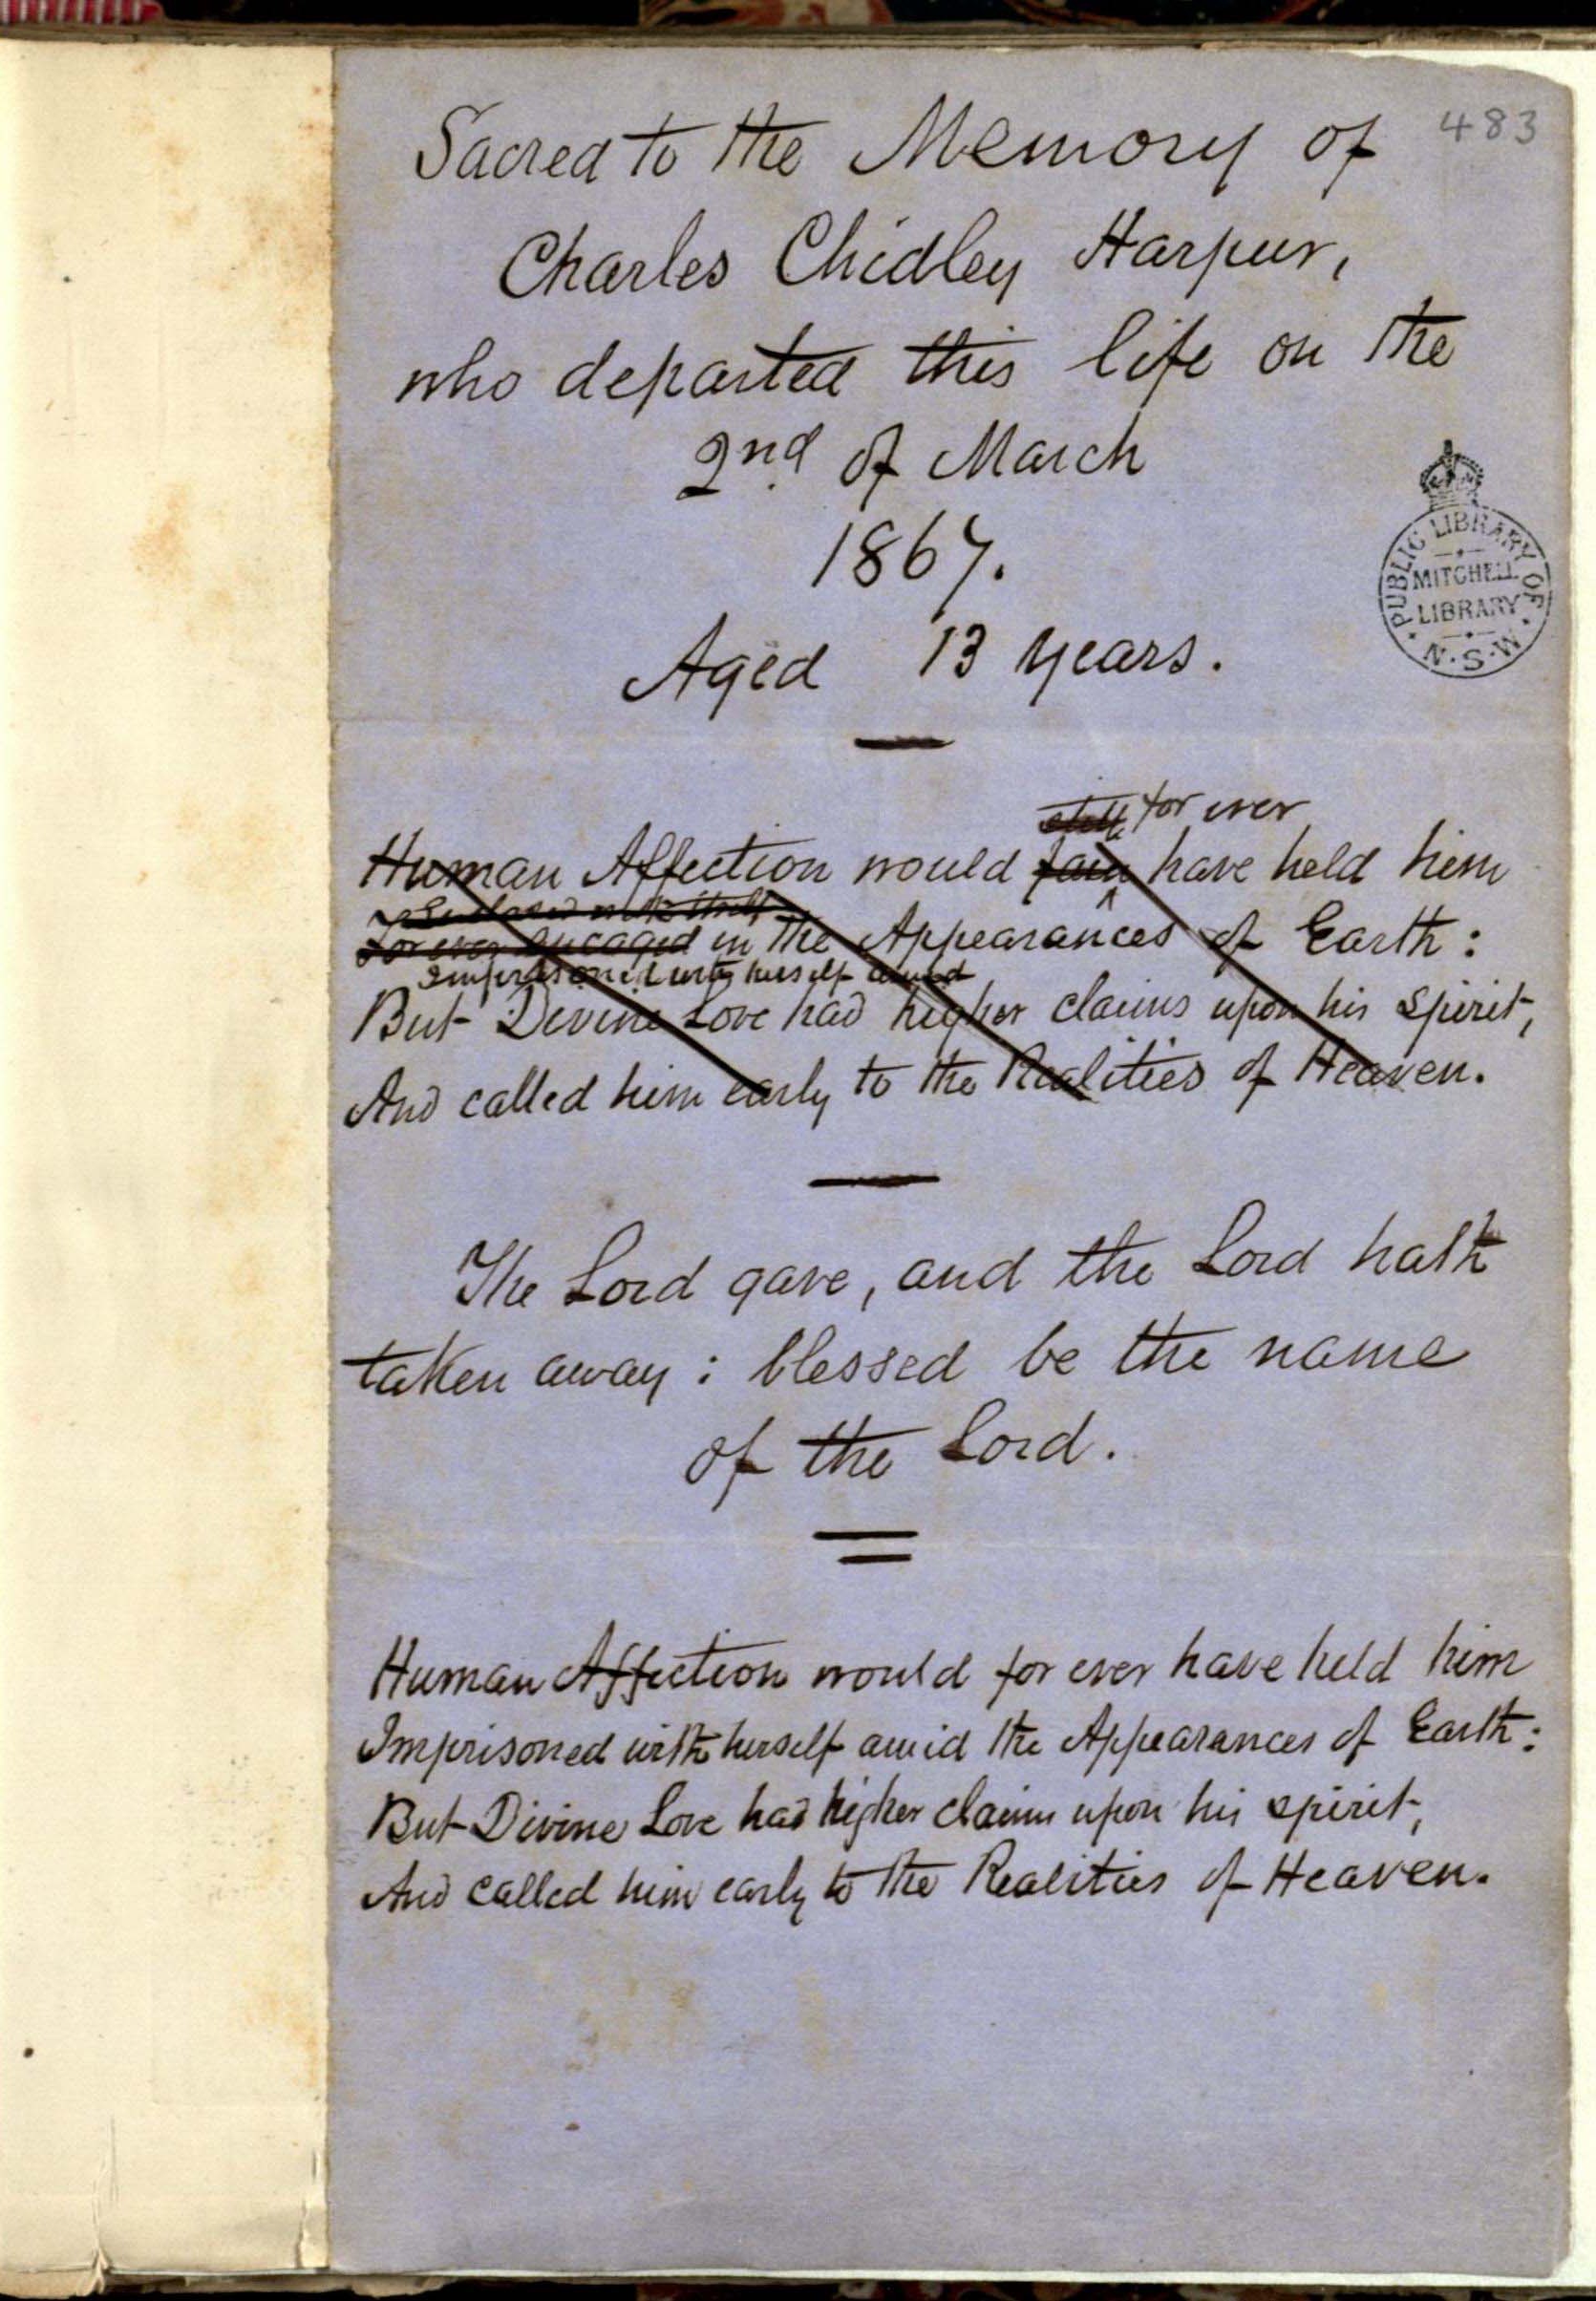 483
Sacred to the Memory of
Charles Chidley Harpur,
who departed this life on the
2nd of March
1867.
Aged 13 years.
PUBLIC LIBRARY OF N.S.W.
MITCHELL
LIBRARY
for ever
Human Affection would fain have held him
For ever encaged in the Appearances of Earth:
Imprisoned with herself amid
But Divine Love had higher claims upon his spirit,
And called him early to the Realities of Heaven.
The Lord gave, and the Lord hath
taken away: blessed be the name
of the Lord.
Human Affection would for ever have held him
Imprisoned with herself amid the Appearances of Earth:
But Divine Love had higher claims upon his spirit,
And called him early to the Realities of Heaven.